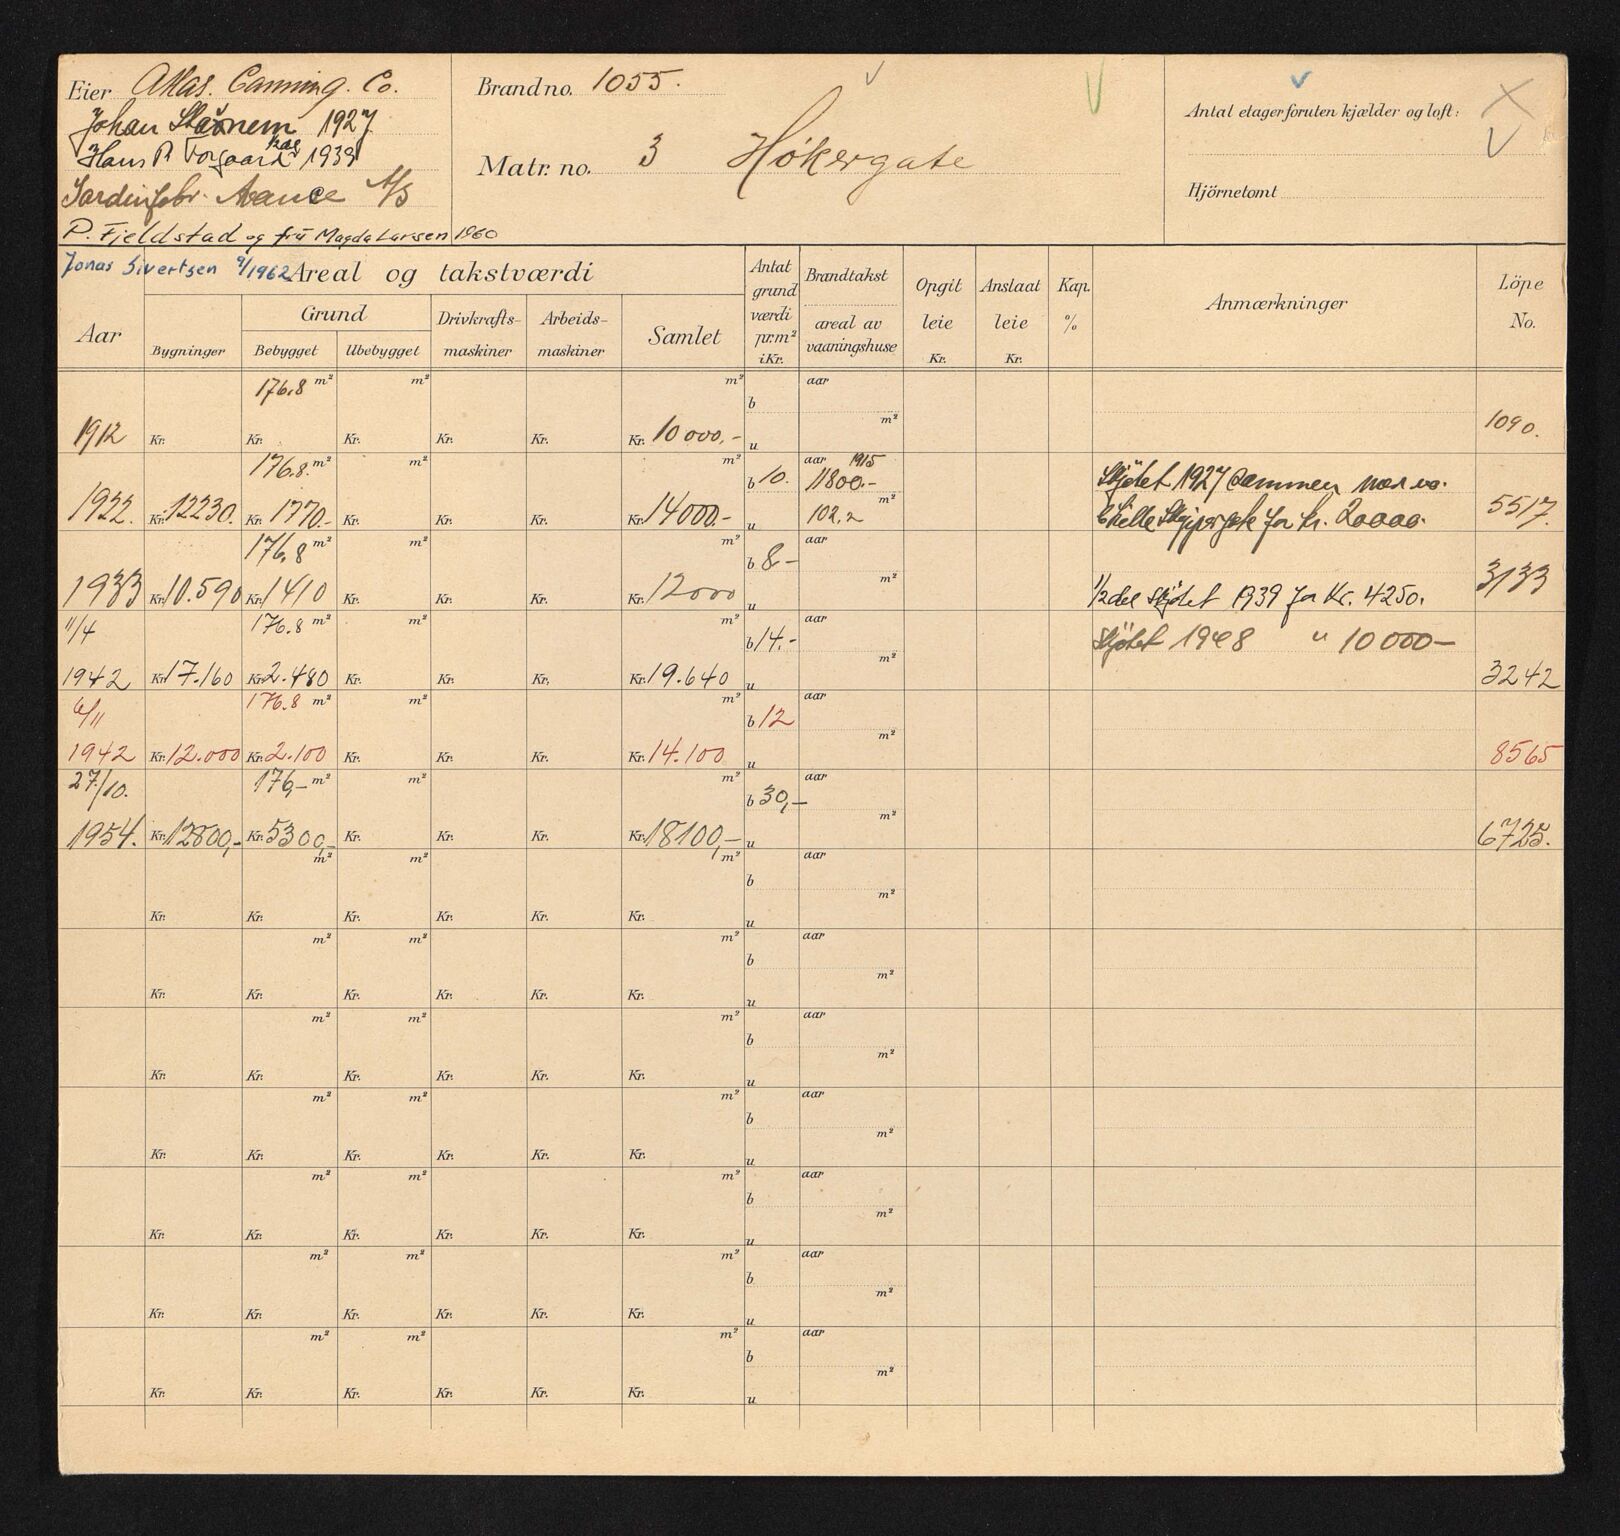 Eier Atlas. Canning. Co.
Johan 1927
Hans P. Torgaard 1/2 del 1939
Sardinfabr. Avance A/S
P. Fjeldstad og fru Magda Larsen 1960
Jonas Sivertsen 9/1962
Brand no. 1055.
Matr. no. 3 Høkergate
Antal etager foruten kjælder og loft:
Hjörnetomt
Areal og takstværdi
Aar
Bygninger
Grund
Bebygget Ubebygget
Drivkrafts-maskiner
Arbeids-maskiner
Samlet
Antat grund værdi pr. m² i Kr.
Brandtakst
areal av vaaningshuse
Opgit leie Kr.
Anslaat leie Kr.
Kap. %
Anmærkninger
Löpe No.
176.8 m² m² m² b aar m²
1912 Kr. Kr. Kr. Kr. Kr. Kr. 10000,- u 1090.
176.8. m² m² m² b 10. aar 1915 11800.- m² Skjøtet 1927 sammen
1922. Kr. 12230. Kr. 1770.- Kr. Kr. Kr. Kr. 14000.- u 102,2 for kr. 20000. 5517.
176,8 m² m² m² b 8.- aar m²
1933 Kr. 10.590 Kr. 1410 Kr. Kr. Kr. Kr. 12000 u 1/2 del skjøtet 1939 for Kr. 4250. 3133
11/4 176.8 m² m² m² b 14.- aar m² Skjøtet 1948 " 10000-
1942 Kr. 17.160 Kr. 2.480 Kr. Kr. Kr. Kr. 19.640 u 3242
6/11 176.8 m² m² m² b 12 aar m²
1942 Kr. 12.000 Kr. 2.100 Kr. Kr. Kr. Kr. 14.100 u 8565
27/10. 176,- m² m² m² b 30,- aar m²
1954. Kr. 12800,- Kr. 5300,- Kr. Kr. Kr. Kr. 18100,- u 6725.
m² m² m² b aar m²
Kr. Kr. Kr. Kr. Kr. Kr. u
m² m² m² b aar m²
Kr. Kr. Kr. Kr. Kr. Kr. u
m² m² m² b aar m²
Kr. Kr. Kr. Kr. Kr. Kr. u
m² m² m² b aar m²
Kr. Kr. Kr. Kr. Kr. Kr. u
m² m² m² b aar m²
Kr. Kr. Kr. Kr. Kr. Kr. u
m² m² m² b aar m²
Kr. Kr. Kr. Kr. Kr. Kr. u
m² m² m² b aar m²
Kr. Kr. Kr. Kr. Kr. Kr. u